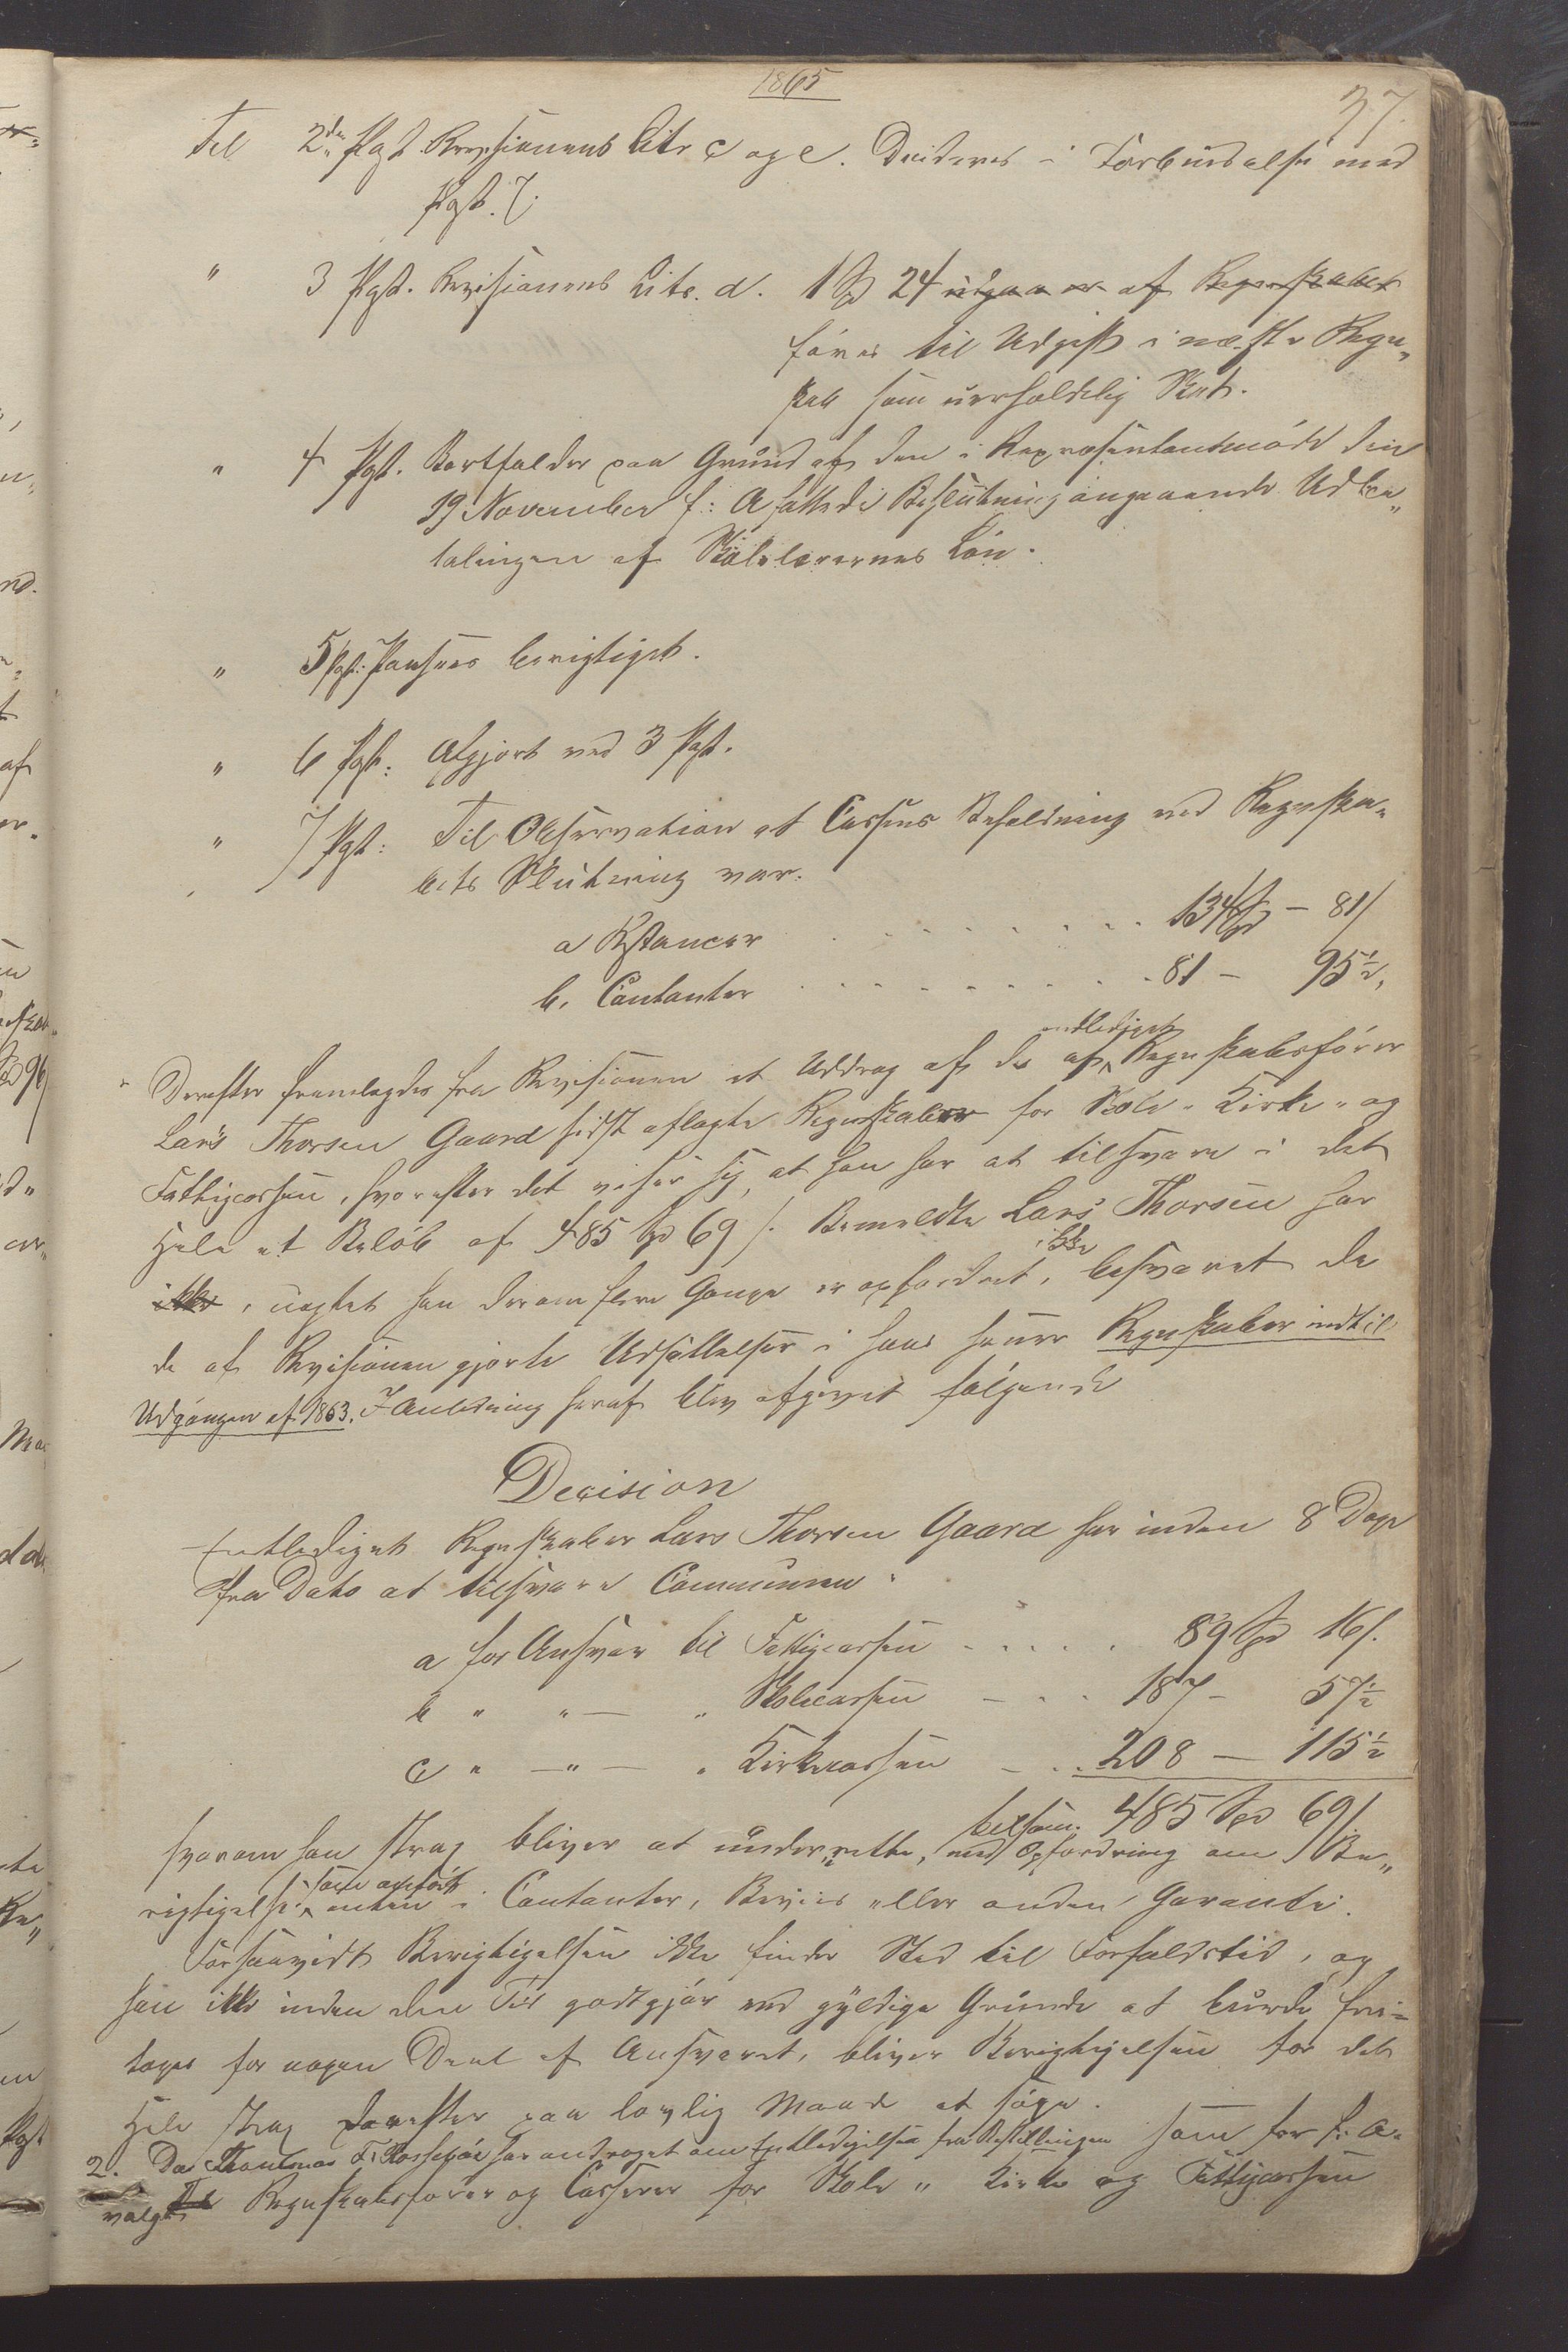 1865
37.
Til 2den Post Revisionens Litr c og e. Decideres i Forbindelse med
Post. 7.
" 3 Post. Revisionens Litr. d. 1 Spd 24 udgaar af Regnskabet
føres til Udgift i næste Regn„
skab som uerholdelig Skat.
" 4 Post. Bortfalder paa Grund af den i Repræsentantmøde den
19 November f: A fattede Beslutning angaaende Udbe„
talingen af Skolelærernes Løn.
" 5 Post: Ansees berigtiget.
" 6 Post: Afgjort ved 3 Post.
" 7 Post: Til Observation at Cassens Beholdning ved Regnska„
bets Slutning var.
a Restancer . . . . . . . . 134 Spd – 81/
b. Contanter . . . . . . . . . 81 – 95½,
Derefter fremlagdes fra Revisionen et Uddrag af de af entlediget Regnskabsfører
Lars Thorsen Gaard sidst aflagte Regnskaber for Skole- Kirke- og
Fattigcassen, hvorefter det viser sig, at han har at tilsvare i det
Hele et Beløb af 485 Spd 69 /. Bemeldte Lars Thorsen har
ikke, uagtet han derom flere Gange er opfordret, ikke besvaret de
de af Revisionen gjorte Udsættelser i hans Regnskaber indtil
Udgangen af 1863. I Anledning heraf blev afgivet følgende
Decision
Entlediget Regnskabsr Lars Thorsen Gaard har inden 8 Dage
fra Dato at tilsvare Communen
a for Ansvar til Fattigcassen . . . . . 89 Spd 16/.
b " " — " Skolecassen – . . 187 – 57½
c " — " — " Kirkecassen – . . 208 — 115½
tilsam. 485 Spd 69/
hvorom han strax bliver at underrette, med Opfordring om Be„
rigtigelse, som anført enten i Contanter, Beviis eller anden Garanti.
Forsaavidt Berigtigelsen ikke finder Sted til Forfaldstid, og
han ikke inden den Tid godtgjør ved gyldige Grunde at burde fri=
tages for nogen Deel af Ansvaret, bliver Berigtigelsen for det
Hele strax derefter paa lovlig Maade at søge.
2. Da Thomas T. har andraget om Entledigelse fra Bestillingen som for f: A.
valgt Regnskabsfører og Casserer for Skole " Kirke og Fattigcassen